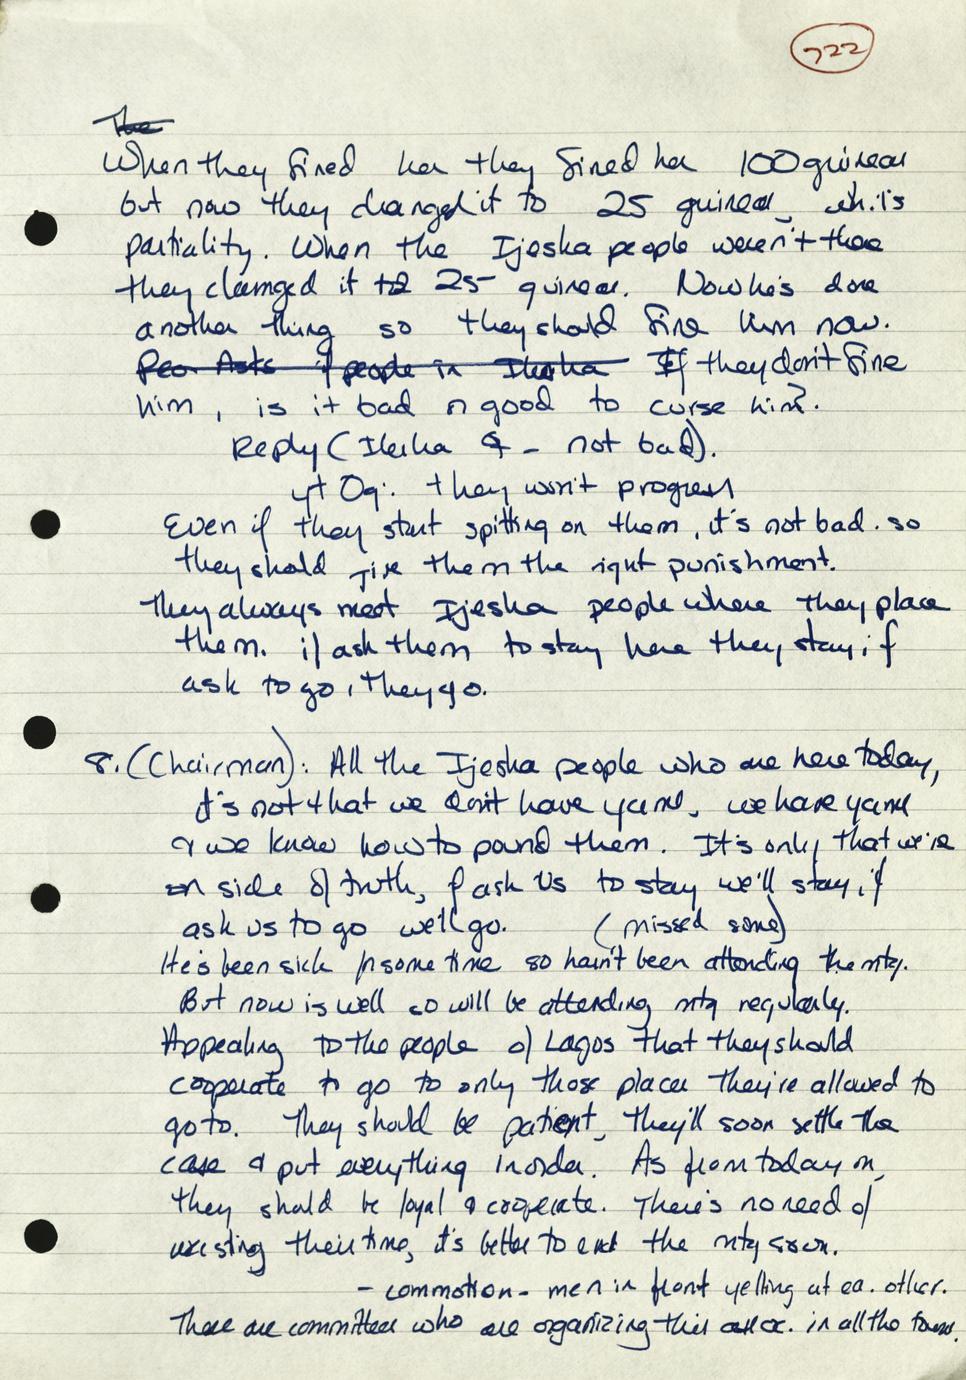 722
The
When they fined her they fined her 100 guineas
but now they changed it to 25 guineas, wh. is
partiality. When the Ijesha people weren't there
they changed it to 25 guineas. Now he's done
another thing so they should fine him now.
Peo Asks if people in Ilesha If they don't fine
him, is it bad or good to curse him?
Reply (Ilesha ♀ - not bad).
yt Og: they won't progress
Even if they start spitting on them, it's not bad. so
they should give them the right punishment.
They always meet Ijesha people where they place
them. if ask them to stay here they stay, if
ask to go, they go.
8. (Chairman): All the Ijesha people who are here today,
it's not that we don't have yams, we have yams
& we know how to pound them. It's only that we're
on side of truth, if ask us to stay we'll stay, if
ask us to go we'll go. (missed some)
He's been sick for some time so hasn't been attending the mtg.
But now is well so will be attending mtg regularly.
Appealing to the people of Lagos that they should
cooperate to go to only those places they're allowed to
go to. They should be patient, they'll soon settle the
case & put everything in order. As from today on,
they should be loyal & cooperate. There's no need of
wasting their time, it's better to end the mtg soon.
- commotion - men in front yelling at ea. other.
There are committees who are organizing this in all the towns.